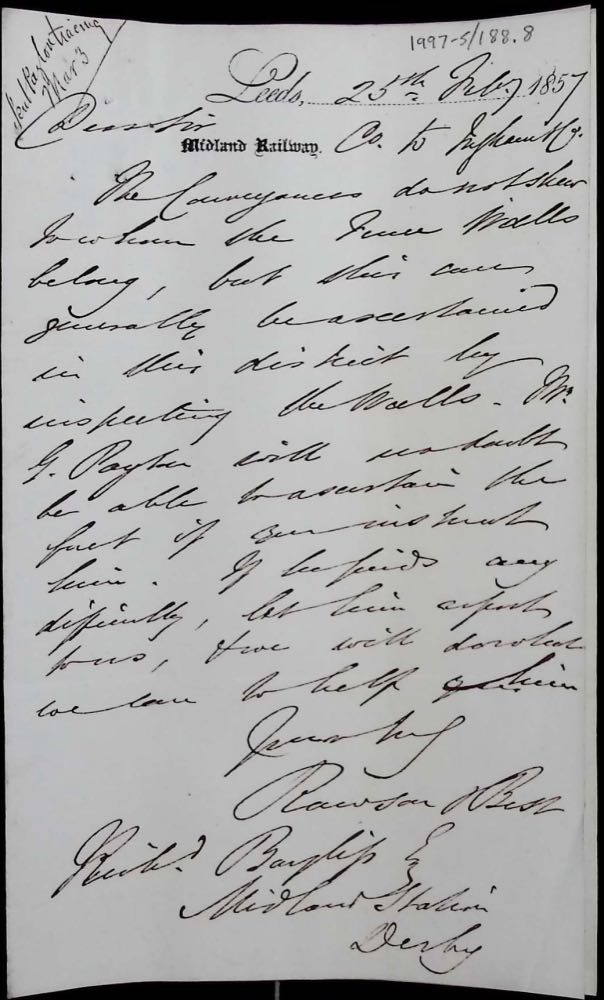 1997-5/188.8
Sent Payton tracing
Mar 3
Leeds, 25th Feby 1857
Dear Sir
Midland Railway. Co. to Ingham & Co.
The Conveyances do not shew
to whom the Fence Walls
belong, but this can
generally be ascertained
in this district by
inspecting the Walls - Mr.
G. Payton will no doubt
be able to ascertain the
fact if you instruct
him. If he finds any
difficulty, let him report
to us, & we will do what
we can to help him
Yours truly
Rawson & Best
Bayliss Esq
Midland Station
Derby